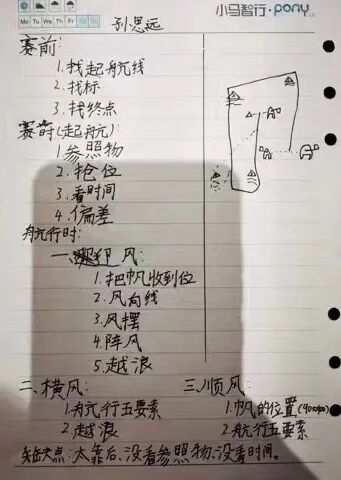 小马智行·pony
Mo Tu We Th Fr Sa Su
孙思远
赛前:
1.找起航线
2.找标
3.找终点
赛前(起航)
1参照物
2.抢位
3.看时间
4.偏差
航行时:
一、迎风:
1.把帆收到位
2.风向线
3.风摆
4.阵风
5.越浪
二、横风:
1.航行五要素
2.越浪
三、顺风:
1.帆的位置
2.航行五要素
缺点:太靠后、没看参照物、没看时间。